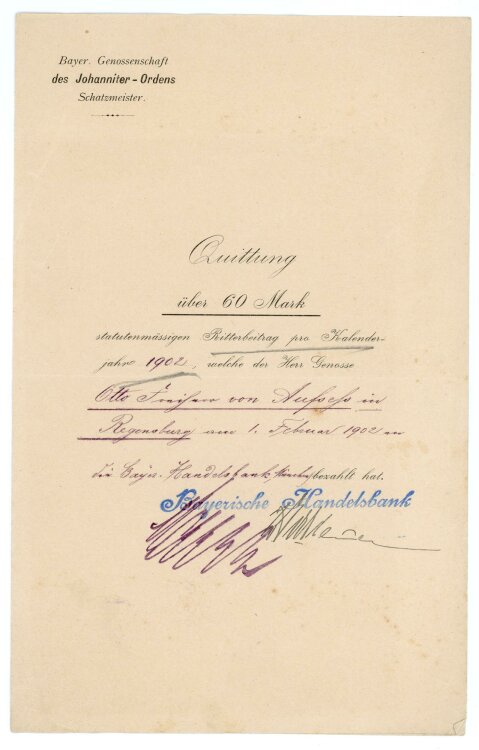 Bayer. Genossenschaft
des Johanniter-Ordens
Schatzmeister.
Quittung
über 60 Mark
statutenmässigen Ritterbeitrag pro Kalender-
jahr 1902, welche der Herr Genosse
Otto Freiherr von Aufsess in
Regensburg am 1. Februar 1902 an
die Bayer. Handelsbank bezahlt hat.
Bayerische Handelsbank